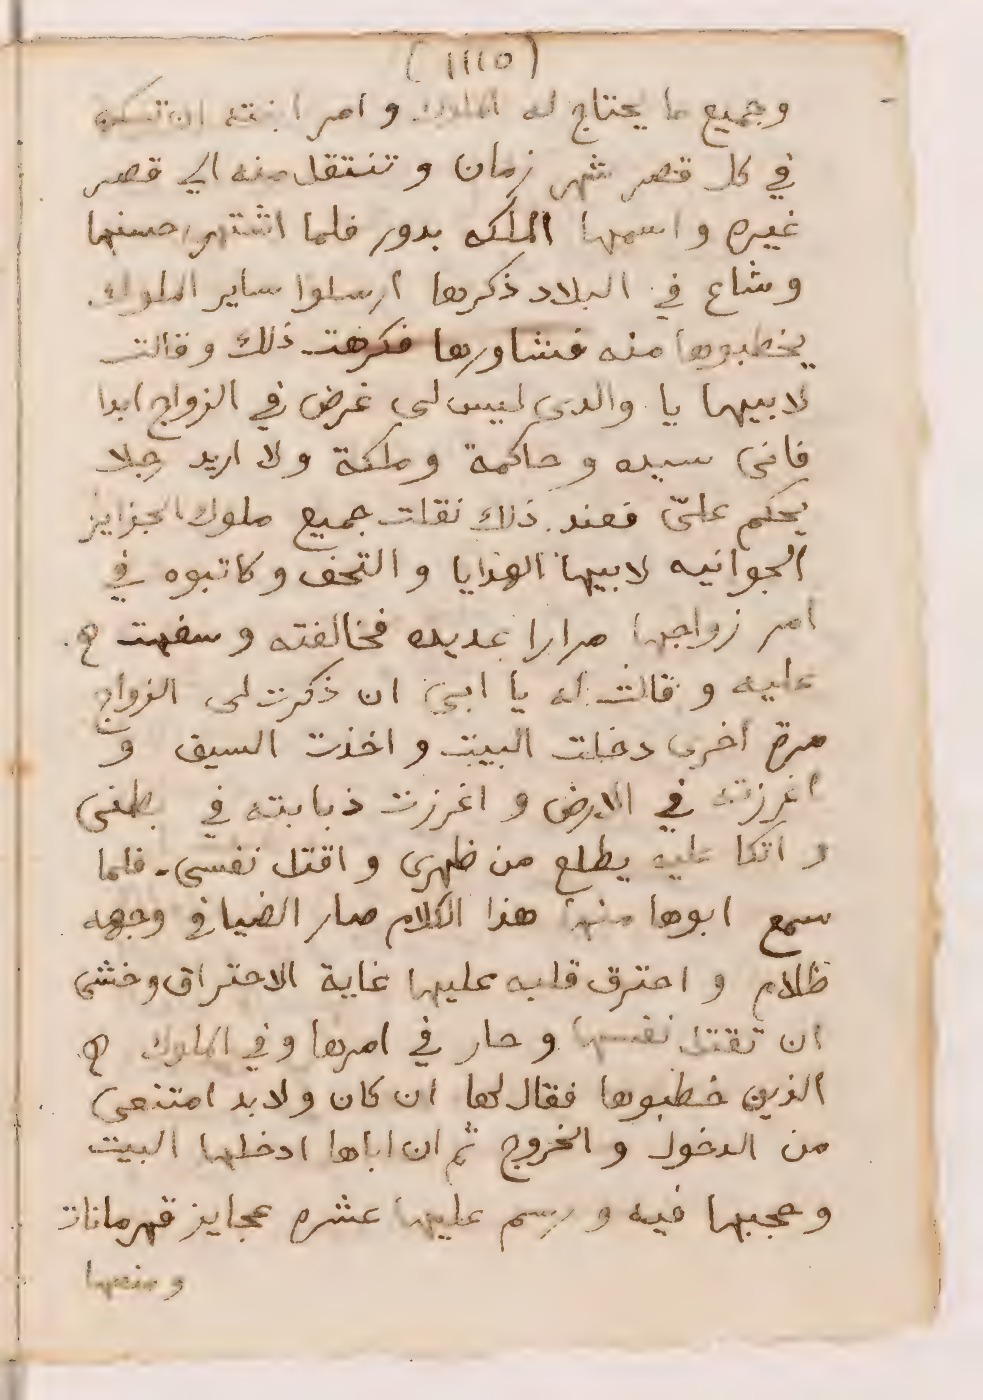 (١١١٥)
و جميع ما يحتاج له الملوك و امر ابنته ان تسكن
في كل قصر شهر زمان و تنتقل منه الي قصر
غيره و اسمها الملكه بدور فلما اشتهر حسنها
و شاع في البلاد ذكرها ارسلوا ساير الملوك
يخطبوها منه فشاورها فكرهت ذلك و قالت
لابيها يا والدى ليس لى غرض في الزواج ابدا
فانى سيده و حاكمة و ملكة و لا اريد رجلا
يحكم علىّ فعند ذلك نقلت جميع ملوك الجزايز
الجوانيه لابيها الهدايا و التحف و كاتبوه في
امر زواجها مرارا عديده فخالفته و سفهت ه
عليه و قالت له يا ابى ان ذكرت لى الزواج
مرة اخرى دخلت البيت و اخذت السيف و
اغرزته في الارض و اغرزت ذبابته في بطنى
و اتكا عليه يطلع من ظهرى و اقتل نفسى. فلما
سمع ابوها منها هذا الكلام صار الضيا في وجهه
ظلام و احترق قلبه عليها غاية الاحتراق و خشى
ان تقتل نفسها و حار في امرها و في الملوك ه
الذين خطبوها فقال لها ان كان و لابد امتنعى
من الدخول و الخروج ثم ان اباها ادخلها البيت
و حجبها فيه و رسم عليها عشره عجايز قهرمانات
و منعها